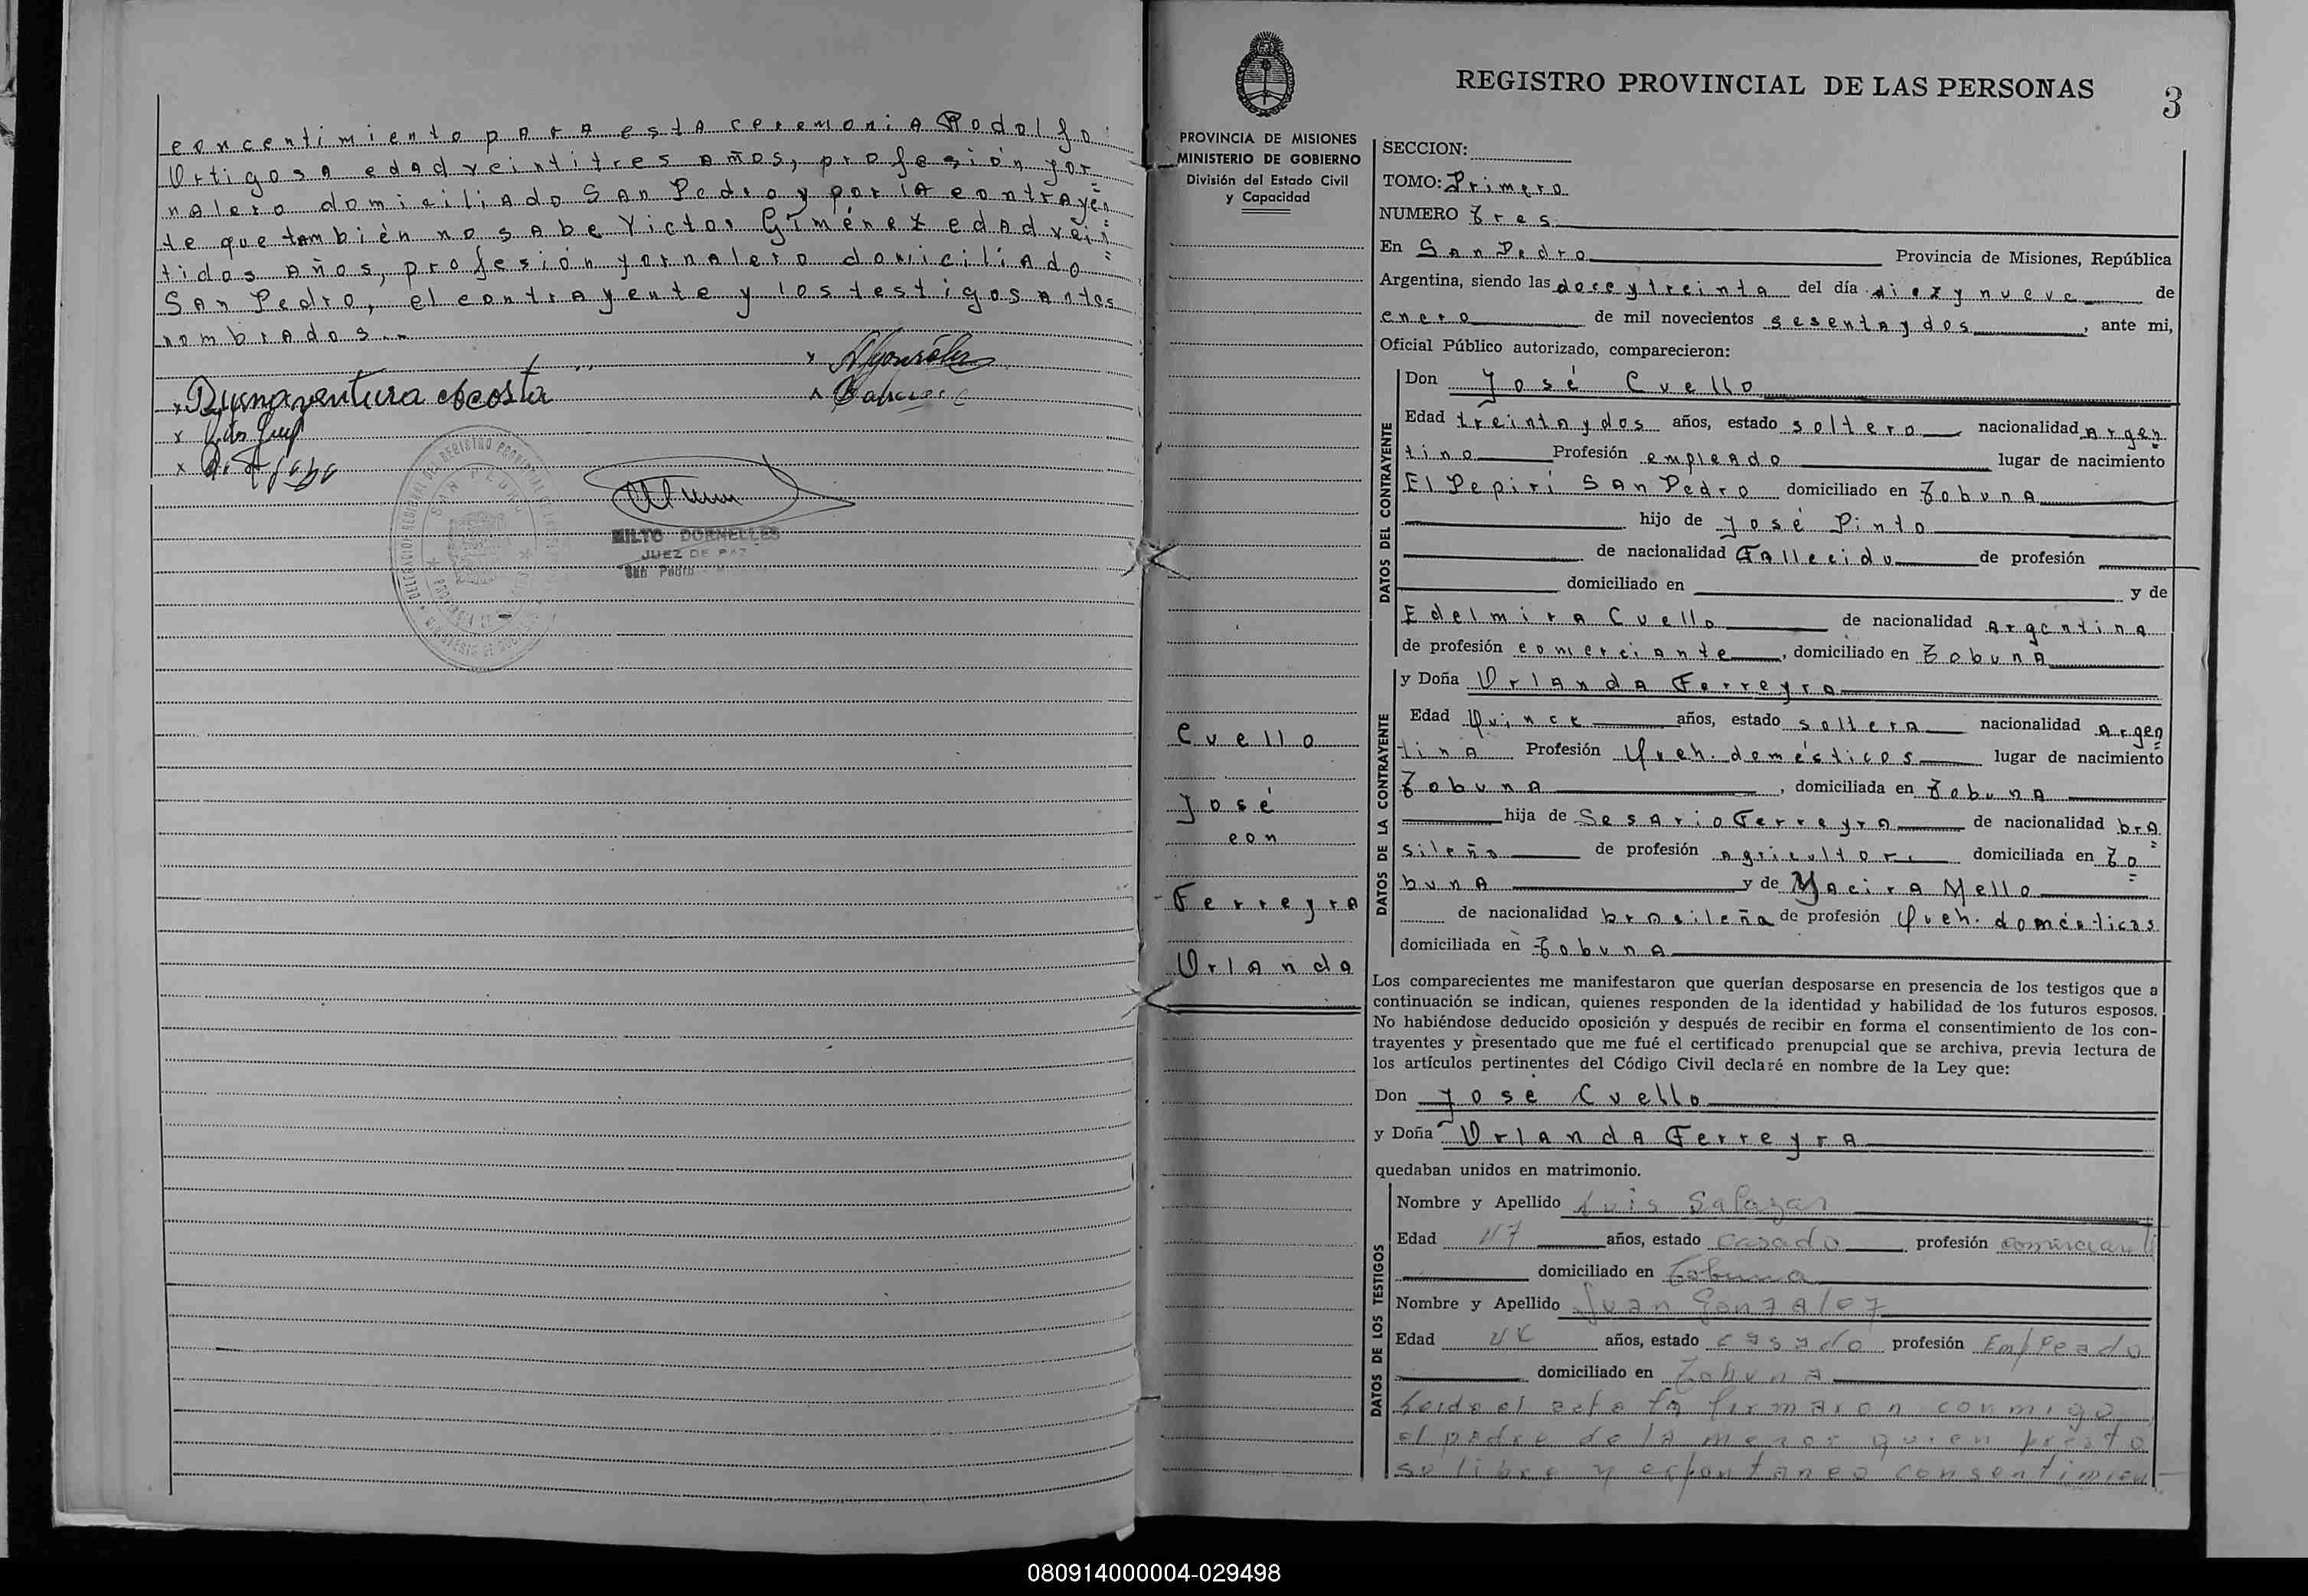 concentimiento para esta ceremonia Rodolfo
Ortigosa edad veintitres años, profesión jor
nalero domiciliado San Pedro y por la contrayen
te que también no sabe Victor Giménez edad vein
tidos años, profesión jornalero domiciliado
San Pedro, el contrayente y los testigos antes
nombrados..
x Buenaventura Acosta
MILTO DORNELLES
JUEZ DE PAZ
San Pedro
REGISTRO PROVINCIAL DE LAS PERSONAS
3
PROVINCIA DE MISIONES
MINISTERIO DE GOBIERNO
División del Estado Civil
y Capacidad
Cuello
José
con
Ferreyra
Orlanda
SECCION:
TOMO: Primero
NUMERO Tres
En San Pedro Provincia de Misiones, República
Argentina, siendo las doce y treinta del día diez y nueve de
enero de mil novecientos sesenta y dos, ante mi,
Oficial Público autorizado, comparecieron:
DATOS DEL CONTRAYENTE
Don José Cuello
Edad treinta y dos años, estado soltero nacionalidad Argen
tino Profesión empleado lugar de nacimiento
El Pepirí San Pedro domiciliado en Tobuna
hijo de José Pinto
de nacionalidad Fallecido de profesión
domiciliado en y de
Edelmira Cuello de nacionalidad Argentina
de profesión comerciante, domiciliado en Tobuna
DATOS DE LA CONTRAYENTE
y Doña Orlanda Ferreyra
Edad Quince años, estado soltera nacionalidad Argen
tina Profesión Queh. domésticos lugar de nacimiento
Tobuna, domiciliada en Tobuna
hija de Sesario Ferreyra de nacionalidad bra
sileño de profesión agricultor domiciliada en To
buna y de Macira Mello
de nacionalidad brasileña de profesión Queh. domésticos
domiciliada en Tobuna
Los comparecientes me manifestaron que querían desposarse en presencia de los testigos que a
continuación se indican, quienes responden de la identidad y habilidad de los futuros esposos.
No habiéndose deducido oposición y después de recibir en forma el consentimiento de los con-
trayentes y presentado que me fué el certificado prenupcial que se archiva, previa lectura de
los artículos pertinentes del Código Civil declaré en nombre de la Ley que:
Don José Cuello
y Doña Orlanda Ferreyra
quedaban unidos en matrimonio.
DATOS DE LOS TESTIGOS
Nombre y Apellido Luis Salazar
Edad 47 años, estado casado profesión comerciante
domiciliado en Tobuna
Nombre y Apellido Juan Gonzalez
Edad años, estado casado profesión Empleado
domiciliado en Tobuna
Leida el acta la firmaron conmigo
el padre de la menor quien prestó
su libre y espontaneo consentimien
080914000004-029498